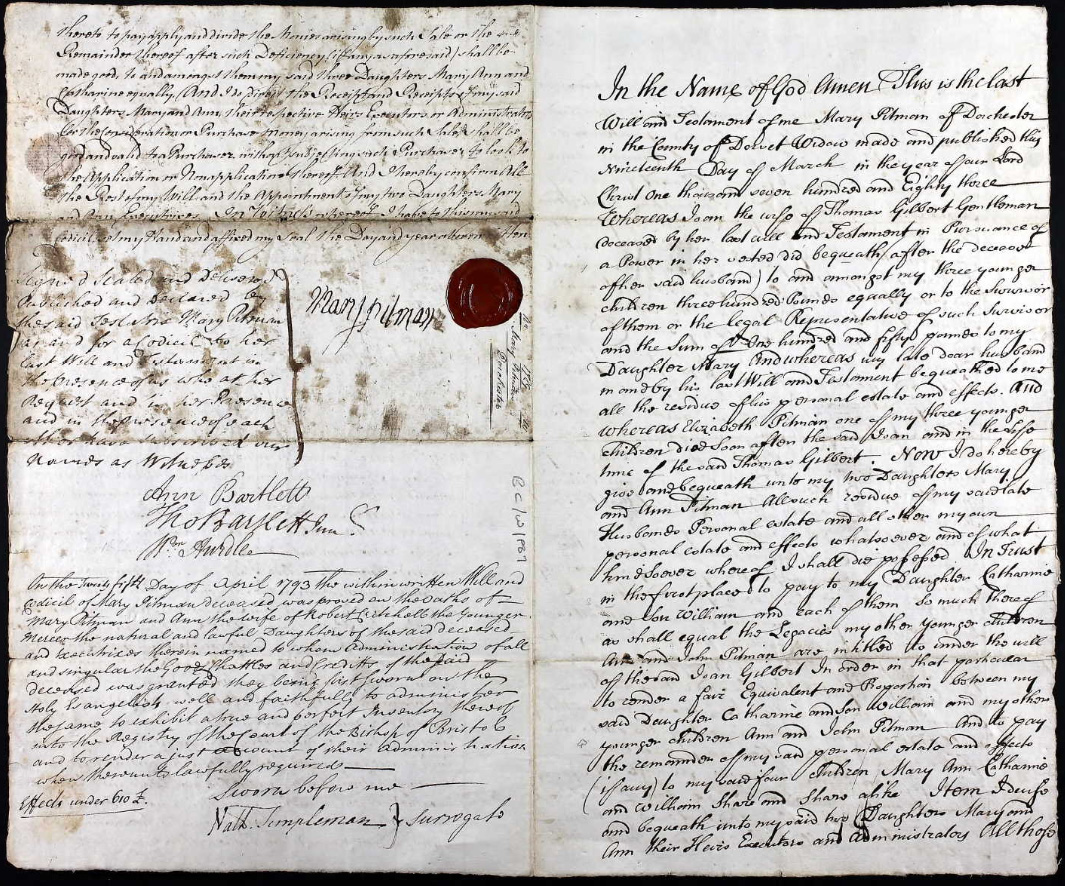 thereto to pay apply and divide the Monies arising by such Sale or the
Remainder thereof after such Deficiency (if any as aforesaid) shall be
made good to and amongst them my said three Daughters Mary Ann and
Catharine equally, And I do direct the Receipt and Receipts of my said
Daughters Mary and Ann their respective Heirs Executors or Administrators
for the consideration or Purchase money arising from such Sale shall be
good and valid to a Purchaser without obliging such Purchaser to look to
the Application or Nonapplication thereof And I hereby confirm All
the Rest of my Will and the Appointment of my two Daughters Mary
and Ann Executrixes In Witness whereof I have to this my said
Codicil set my Hand and affixed my Seal the Day and year above written
Signed Sealed and Delivered
Published and Declared by
the said Testatrix Mary Pitman
as and for a Codicil to her
last Will and Testament in
the Presence of us who at her
Request and in her Presence
and in the Presence of each
other have subscribed our
Names as Witnesses
Mary Pitman
Mary Pitman
Dorchester
Ann Bartlett
Tho Bartlett Junr
Wm
BC/W/P87
On the Twenty fifth Day of April 1793 the within written Will and
Codicil of Mary Pitman deceased was proved on the Oaths of
Mary Pitman and Ann the wife of Robert the Younger
Mercer the natural and lawful Daughters of the said deceased
and Executrixes therein named to whom Administration of all
and singular the Goods Chattles and Credits of the said
deceased was granted they being first sworn on the
Holy Evangelists well and faithfully to administer
the same to exhibit a true and perfect Inventory thereof
into the Registry of the Court of the Bishop of Bristol
and to render a just account of their Administration
when thereunto lawfully required
Sworn before me
Effects under 610 £.
Nath. Templeman } Surrogate
In the Name of God Amen This is the last
Will and Testament of me Mary Pitman of Dorchester
in the County of Dorset Widow made and published this
Nineteenth Day of March in the year of our Lord
Christ One thousand seven hundred and Eighty three
Whereas Joan the wife of Thomas Gilbert Gentleman
deceased by her last will and Testament in Pursuance of
a Power in her vested did bequeath (after the decease
of her said husband) to and amongst my three younger
children three hundred pounds equally or to the Survivor
of them or the legal Representative of such Survivor
and the Sum of One hundred and fifty pounds to my
Daughter Mary And whereas my late dear husband
in and by his last Will and Testament bequeathed to me
all the residue of his personal estate and effects. And
whereas Elizabeth Pitman one of my three younger
children died soon after the said Joan and in the life
time of the said Thomas Gilbert. Now I do hereby
give and bequeath unto my two Daughters Mary
and Ann Pitman All such residue of my said late
Husbands Personal estate and all other my own
personal estate and effects whatsoever and of what
kind soever whereof I shall die possessed In Trust
in the first place to pay to my Daughter Catharine
and Son William and each of them so much thereof
as shall equal the Legacies my other younger children
Ann and John Pitman are intitled to under the will
of the said Joan Gilbert In order in that particular
to render a fair Equivalent and Proportion between my
said Daughter Catharine and Son William and my other
younger children Ann and John Pitman And to pay
the remainder of my said personal estate and effects
(if any) to my said four children Mary Ann Catharine
and William Share and Share alike Item I devise
and bequeath unto my said two Daughters Mary and
Ann their Heirs Executors and Administrators All those